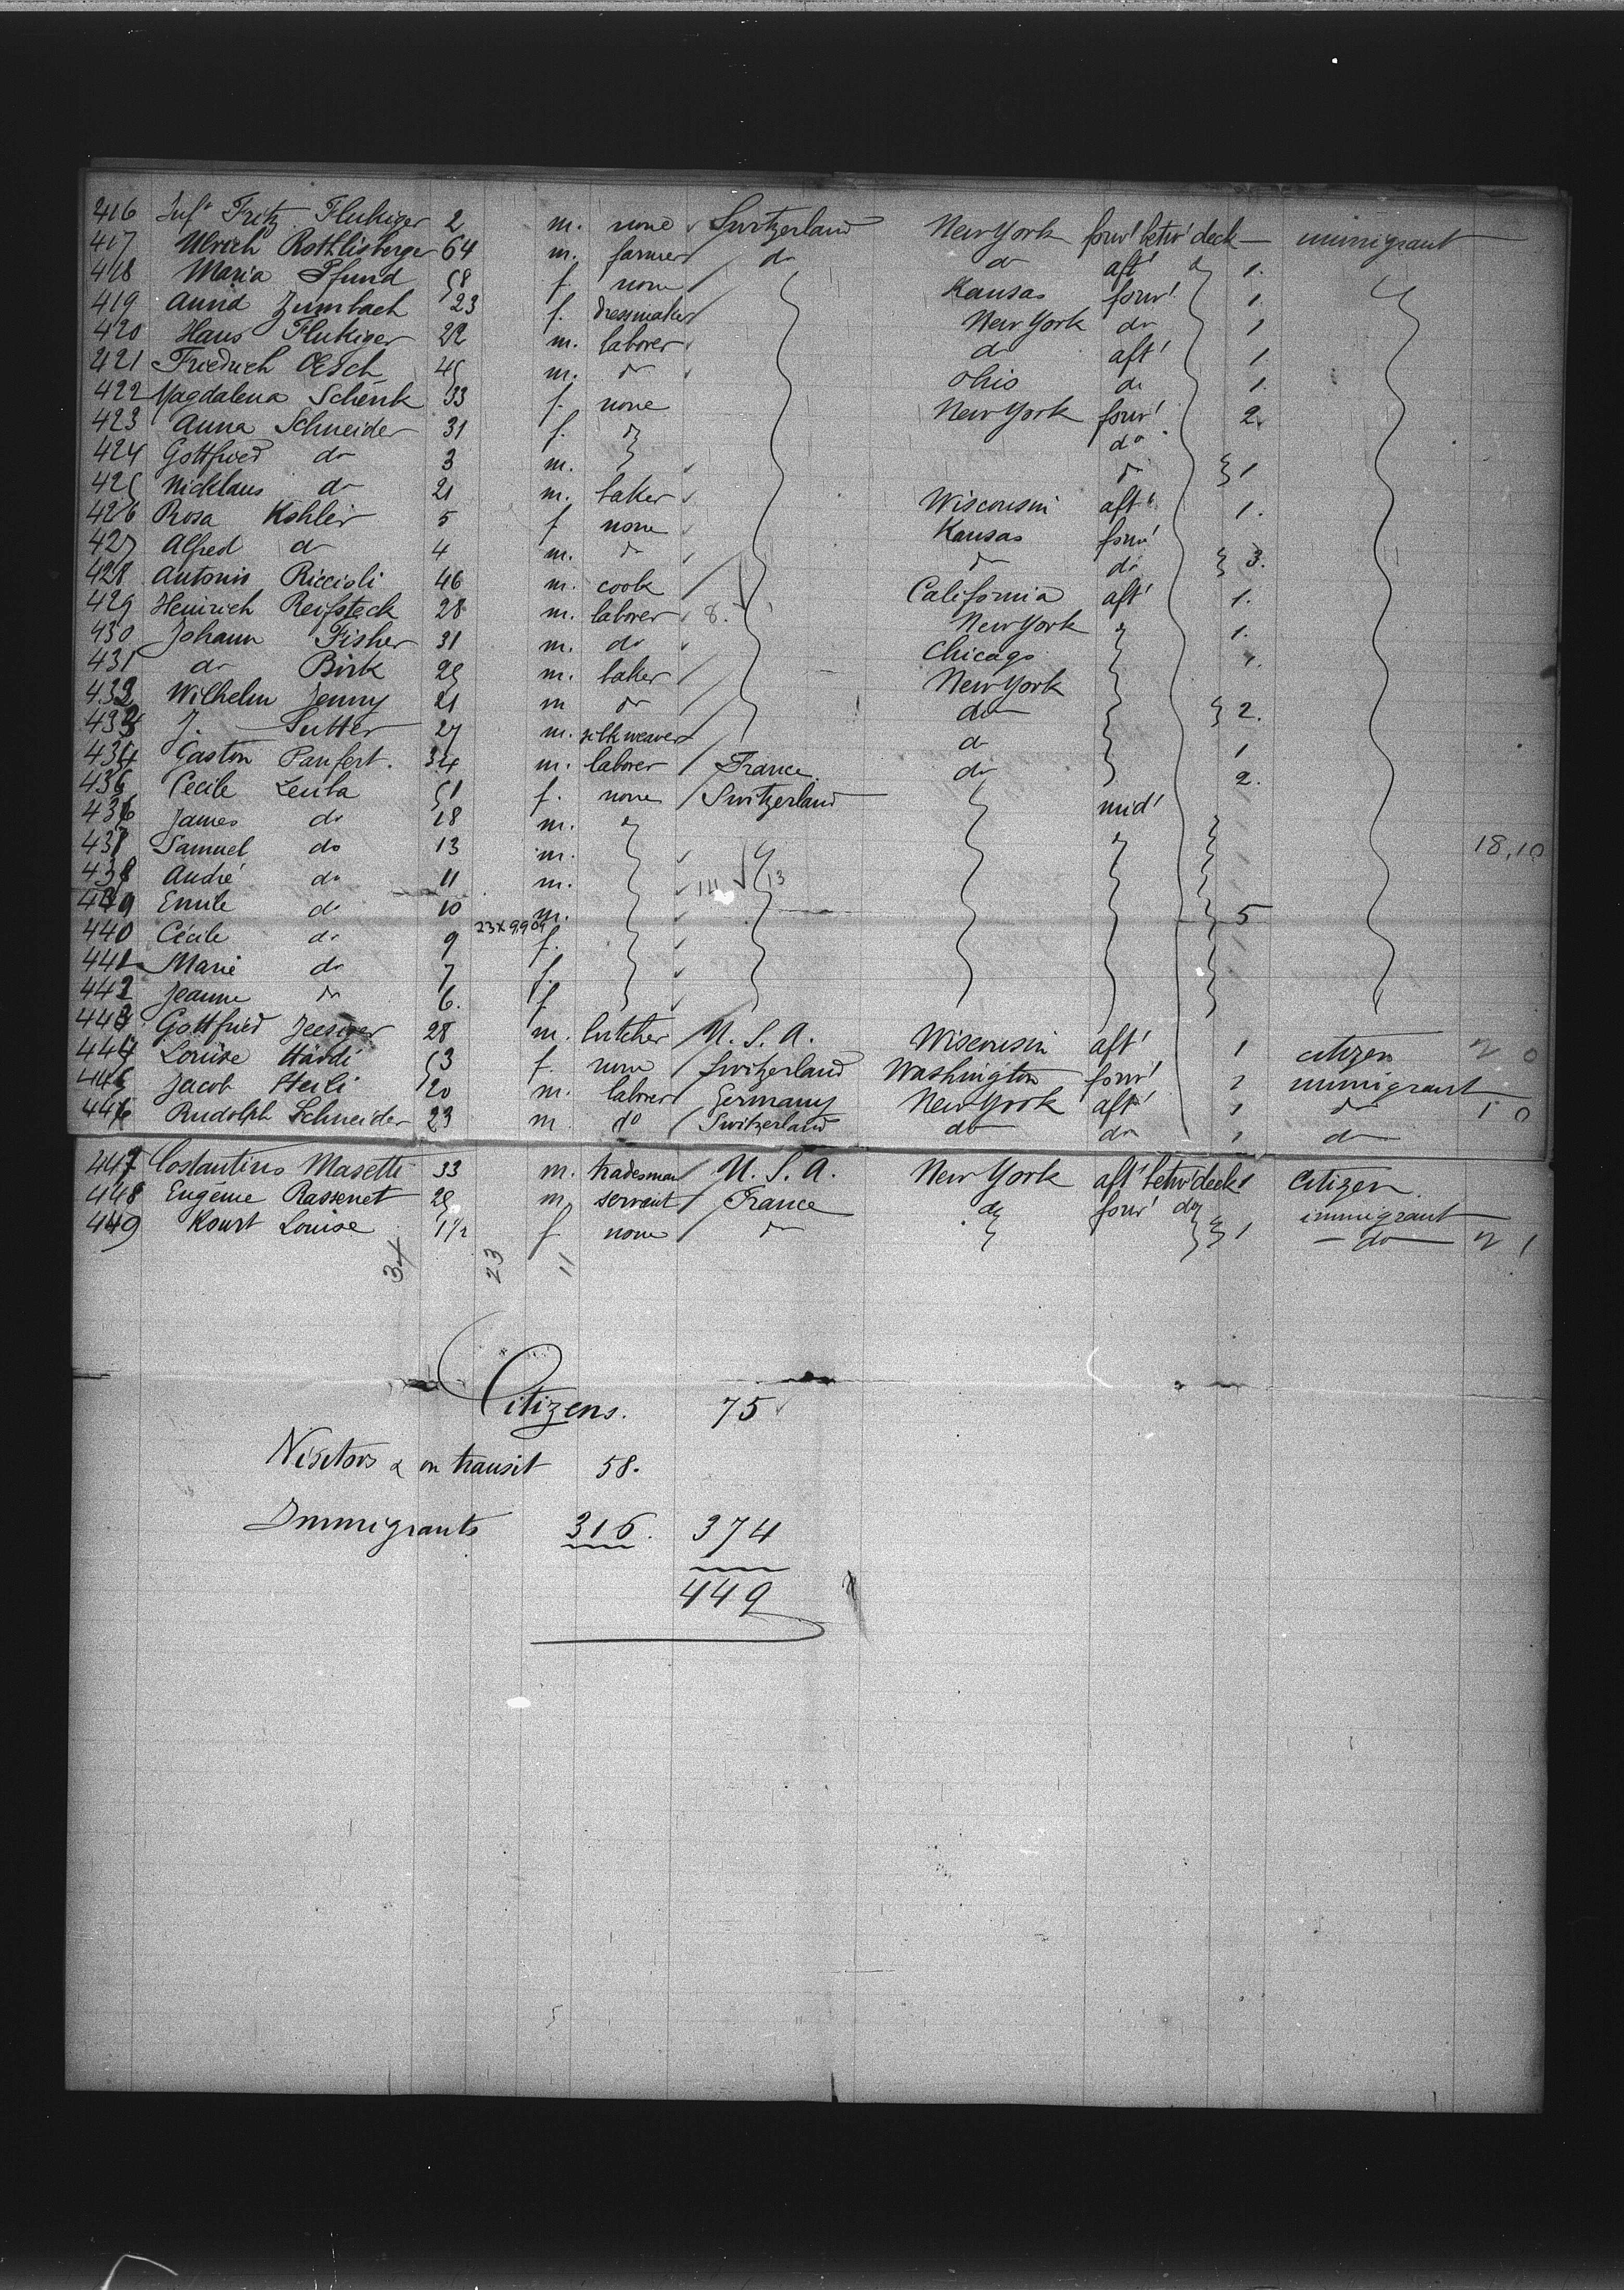 416 Inft Fritz Flukiger 2 m. none Switzerland New York forw' betw' deck — immigrant
417 Ulrich Rothlisberger 64 m. farmer do do aft' 1.
418 Maria Pfund 58 f. none Kansas forw' 1.
419 Anna Zumbach 23 f. dressmaker New York do 1
420 Hans Flukiger 22 m. laborer do aft' 1.
421 Friedrich Oesch 45 m. do Ohio do 1.
422 Magdalena Schenk 33 f. none New York forw' 2.
423 Anna Schneider 31 f. do do
424 Gottfried do 3 m. do 1
425 Nicklaus do 21 m. baker Wisconsin aft' 1.
426 Rosa Kohler 5 f. none Kansas forw'
427 Alfred do 4 m. do do do 3.
428 Antonio Riccioli 46 m. cook California aft' 1.
429 Heinrich Reifsteck 28 m. laborer 8. New York do 1.
430 Johann Fisher 31 m. do Chicago 1.
431 do Birk 25 m. baker New York
432 Wilhelm Jenny 21 m do do 2.
433 J. — Sutter 27 m. silk weaver do 1
434 Gaston Panfert. 34 m. laborer France do 2.
435 Cecile Leuba 51 f. none Switzerland mid'
436 James do 18 m.
437 Samuel do 13 m. 18,10
438 André do 11 m. 13
439 Emile do 10 m. 5
440 Cécile do 9 23X9909 f.
441 Marie do 7 f.
442 Jeanne do 6. f
443 Gottfried 28 m. butcher U. S. A. Wisconsin aft' 1 citizen 2 0
444 Louise 53 f. none Switzerland Washington forw' 1 immigrant
445 Jacob 20 m. laborer Germany New York aft' 1 do 1 0
446 Rudolph Schneider 23 m do Switzerland do do 1 do
447 Costantino Masetti 33 m. tradesman U. S. A. New York aft' betw' deck 1 Citizen.
448 Eugénie Rassenet 25 m. servant France do forw' do immigrant
449 Kourt Louise 1 1/2 f none do 1 — do — 2 1
34 23 11
Citizens. 75
Visitors & on transit 58.
Immigrants 316. 374
449